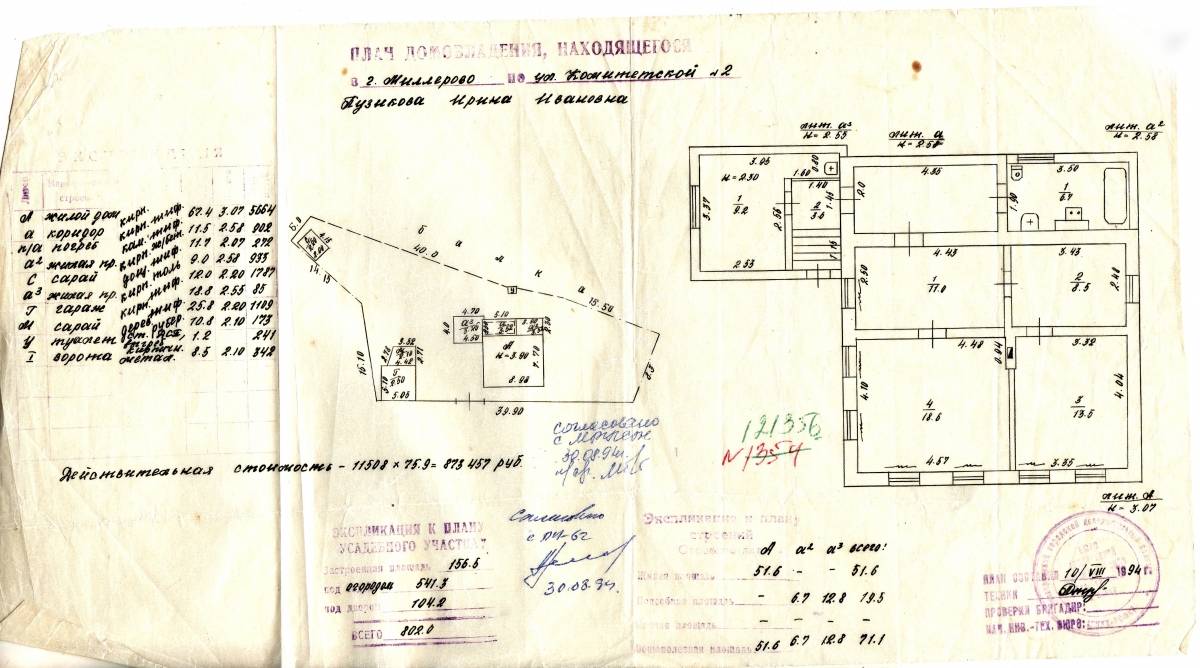 ПЛАН ДОМОВЛАДЕНИЯ, НАХОДЯЩЕГОСЯ
в г. Миллерово по ул. Комитетской №2
Пузикова Ирина Ивановна
ЭКСПЛИКАЦИЯ
А жилой дом кирп. шиф. 67.4 3.07 5664
а коридор кирп. шиф. 11.5 2.58 902
п/а погреб 11.7 2.07 272
а² жилая пр. кирп. шиф. 9.0 2.58 933
С сарай 12.0 2.20 1787
а³ жилая пр. кирп. 18.8 2.55 85
Г гараж кирп. шиф. 25.8 2.20 1109
М сарай дерев. рубер. 10.8 2.10 173
У туалет 1.2 241
I ворота метал. 8.5 2.10 342
6.0
14.15
16.10
б а л к а
40.0
15.50
8.3
39.90
У
4.70
5.10
4.0
4.50
А
н=3.90
7.70
8.98
3.52
4.42
2.71
5.10
Г
2.50
5.05
лит. а³
н=2.55
лит. а
н=2.58
лит. а²
н=2.58
3.05
н=2.30
1
9.2
3.37
2.53
2.56
1.60
0.80
1.40
2
3.6
1.45
1.15
2.0
4.85
3.50
1
6.7
1.90
4.43
2.50
1
11.0
3.43
2
8.5
2.48
4.48
0.94
3.32
4.10
4
18.6
4.57
3
13.5
4.04
3.35
лит. А
н=3.07
Действительная стоимость – 11508 × 75.9 = 873457 руб.
согласовано
30.08.94г.
121356
№1354
Согласовано
30.08.94.
ЭКСПЛИКАЦИЯ К ПЛАНУ
УСАДЕБНОГО УЧАСТКА
Застроенная площадь 156.5
под огородом 541.3
под двором 104.2
ВСЕГО 802.0
Экспликация к плану
строений
А а² а³ всего:
Жилая площадь 51.6 – – 51.6
Подсобная площадь – 6.7 12.8 19.5
площадь – – – –
площадь 51.6 6.7 12.8 71.1
ПЛАН СОСТАВЛЕН 10/VIII 1994 г.
ТЕХНИК
ПРОВЕРИЛ БРИГАДИР:
НАЧ. ИНВ.-ТЕХ. БЮРО: